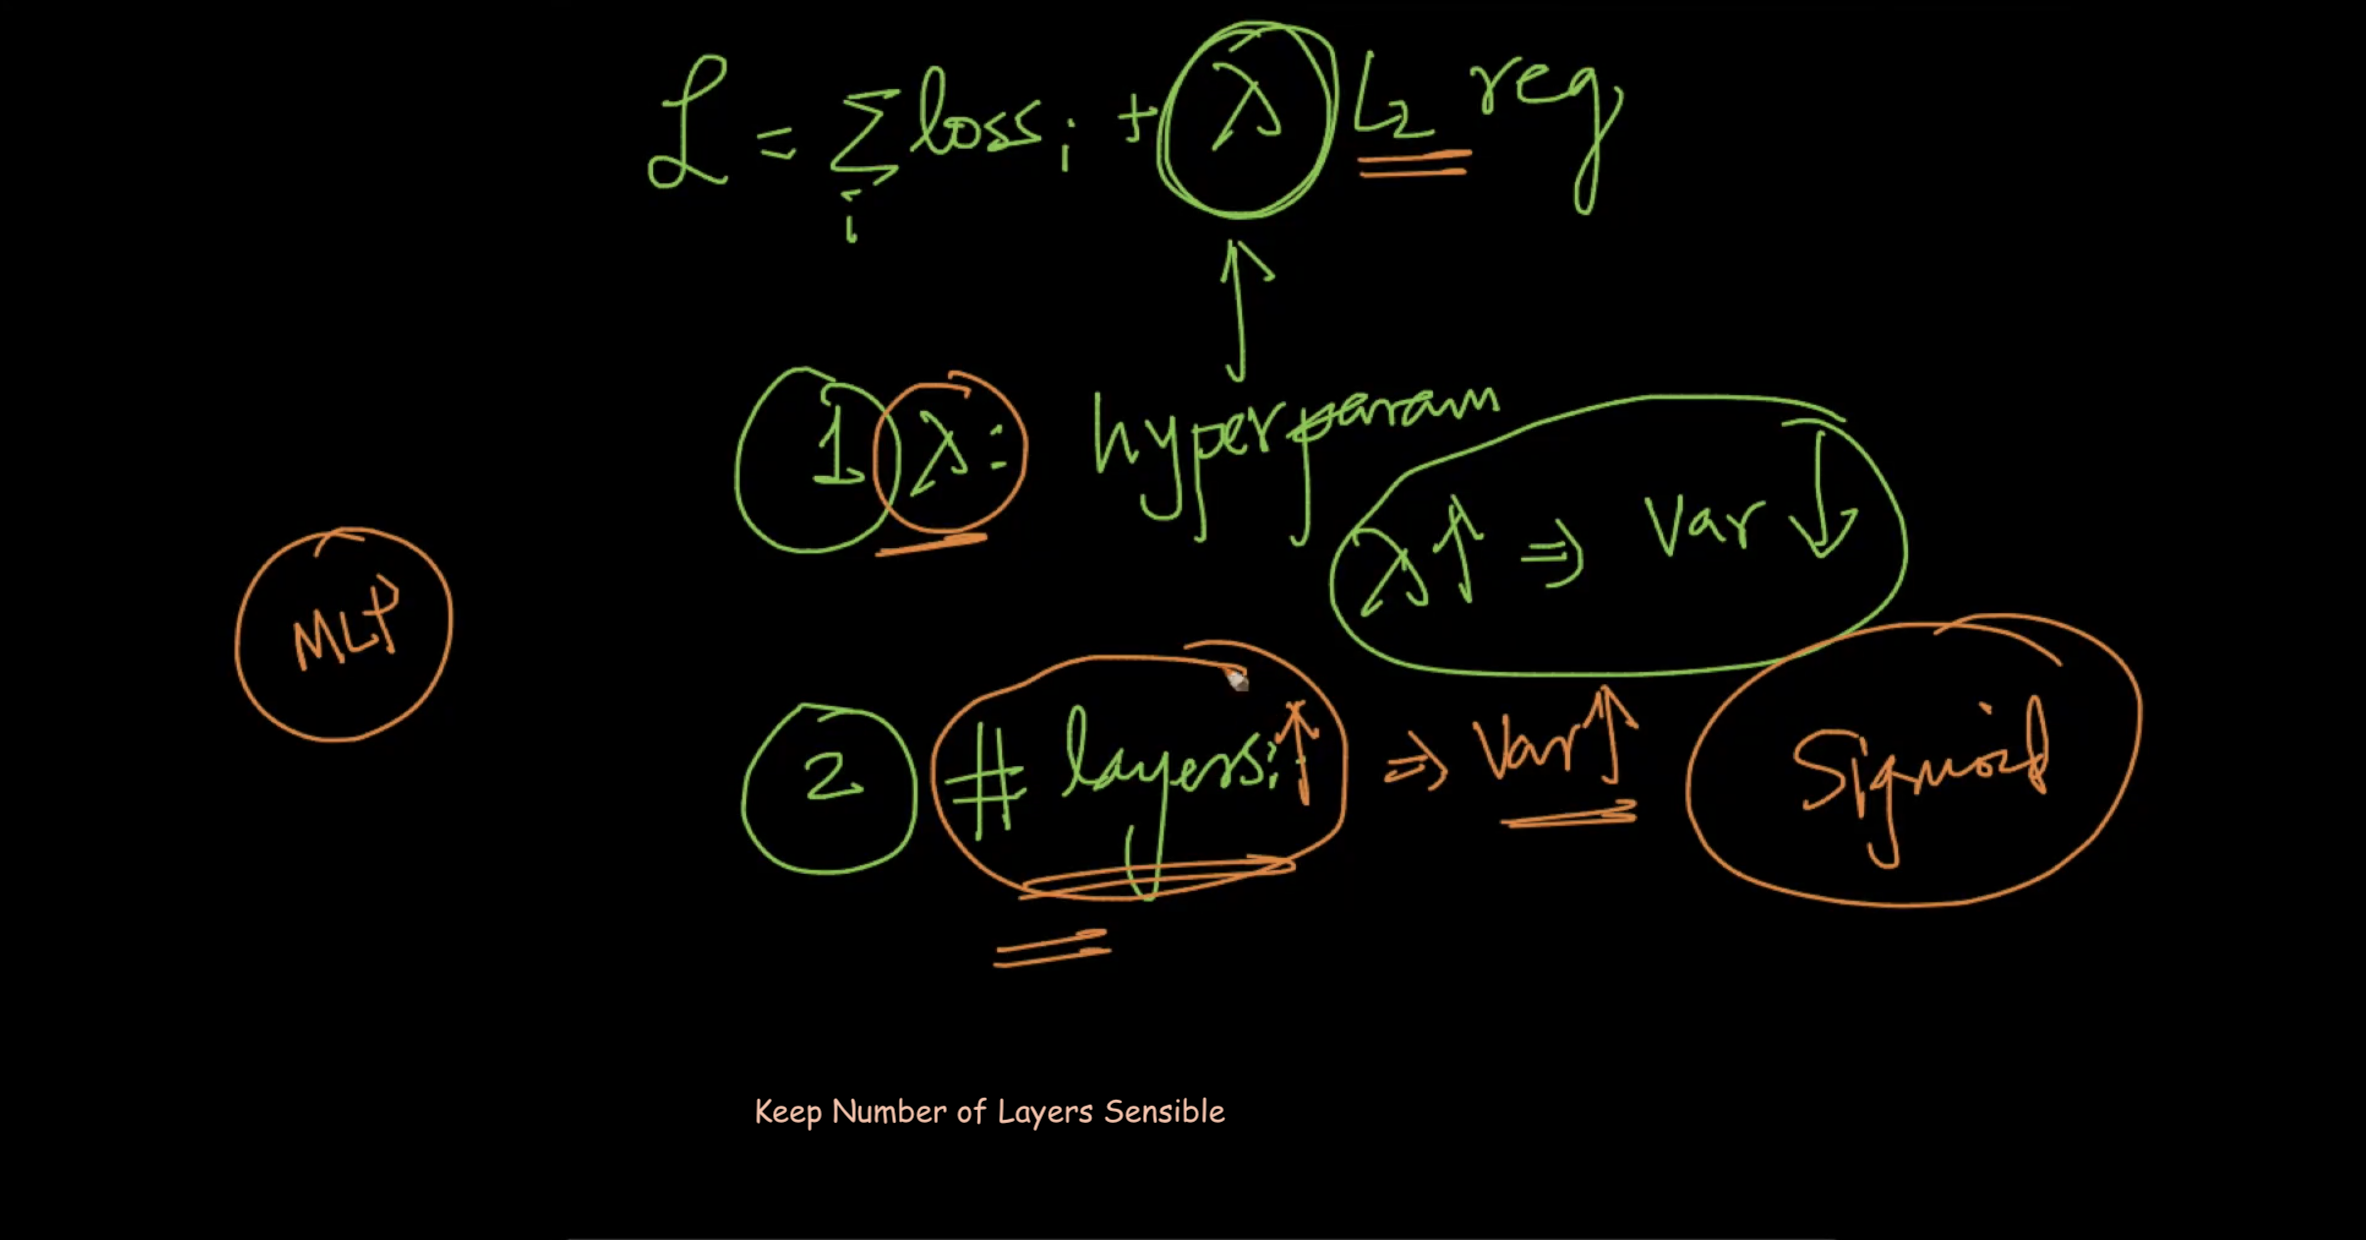 ℒ = Σ_i loss_i + λ L₂ reg
1 λ: hyperparam
λ↑ ⇒ Var↓
MLP
2 # layers:↑ ⇒ Var↑
Sigmoid
Keep Number of Layers Sensible